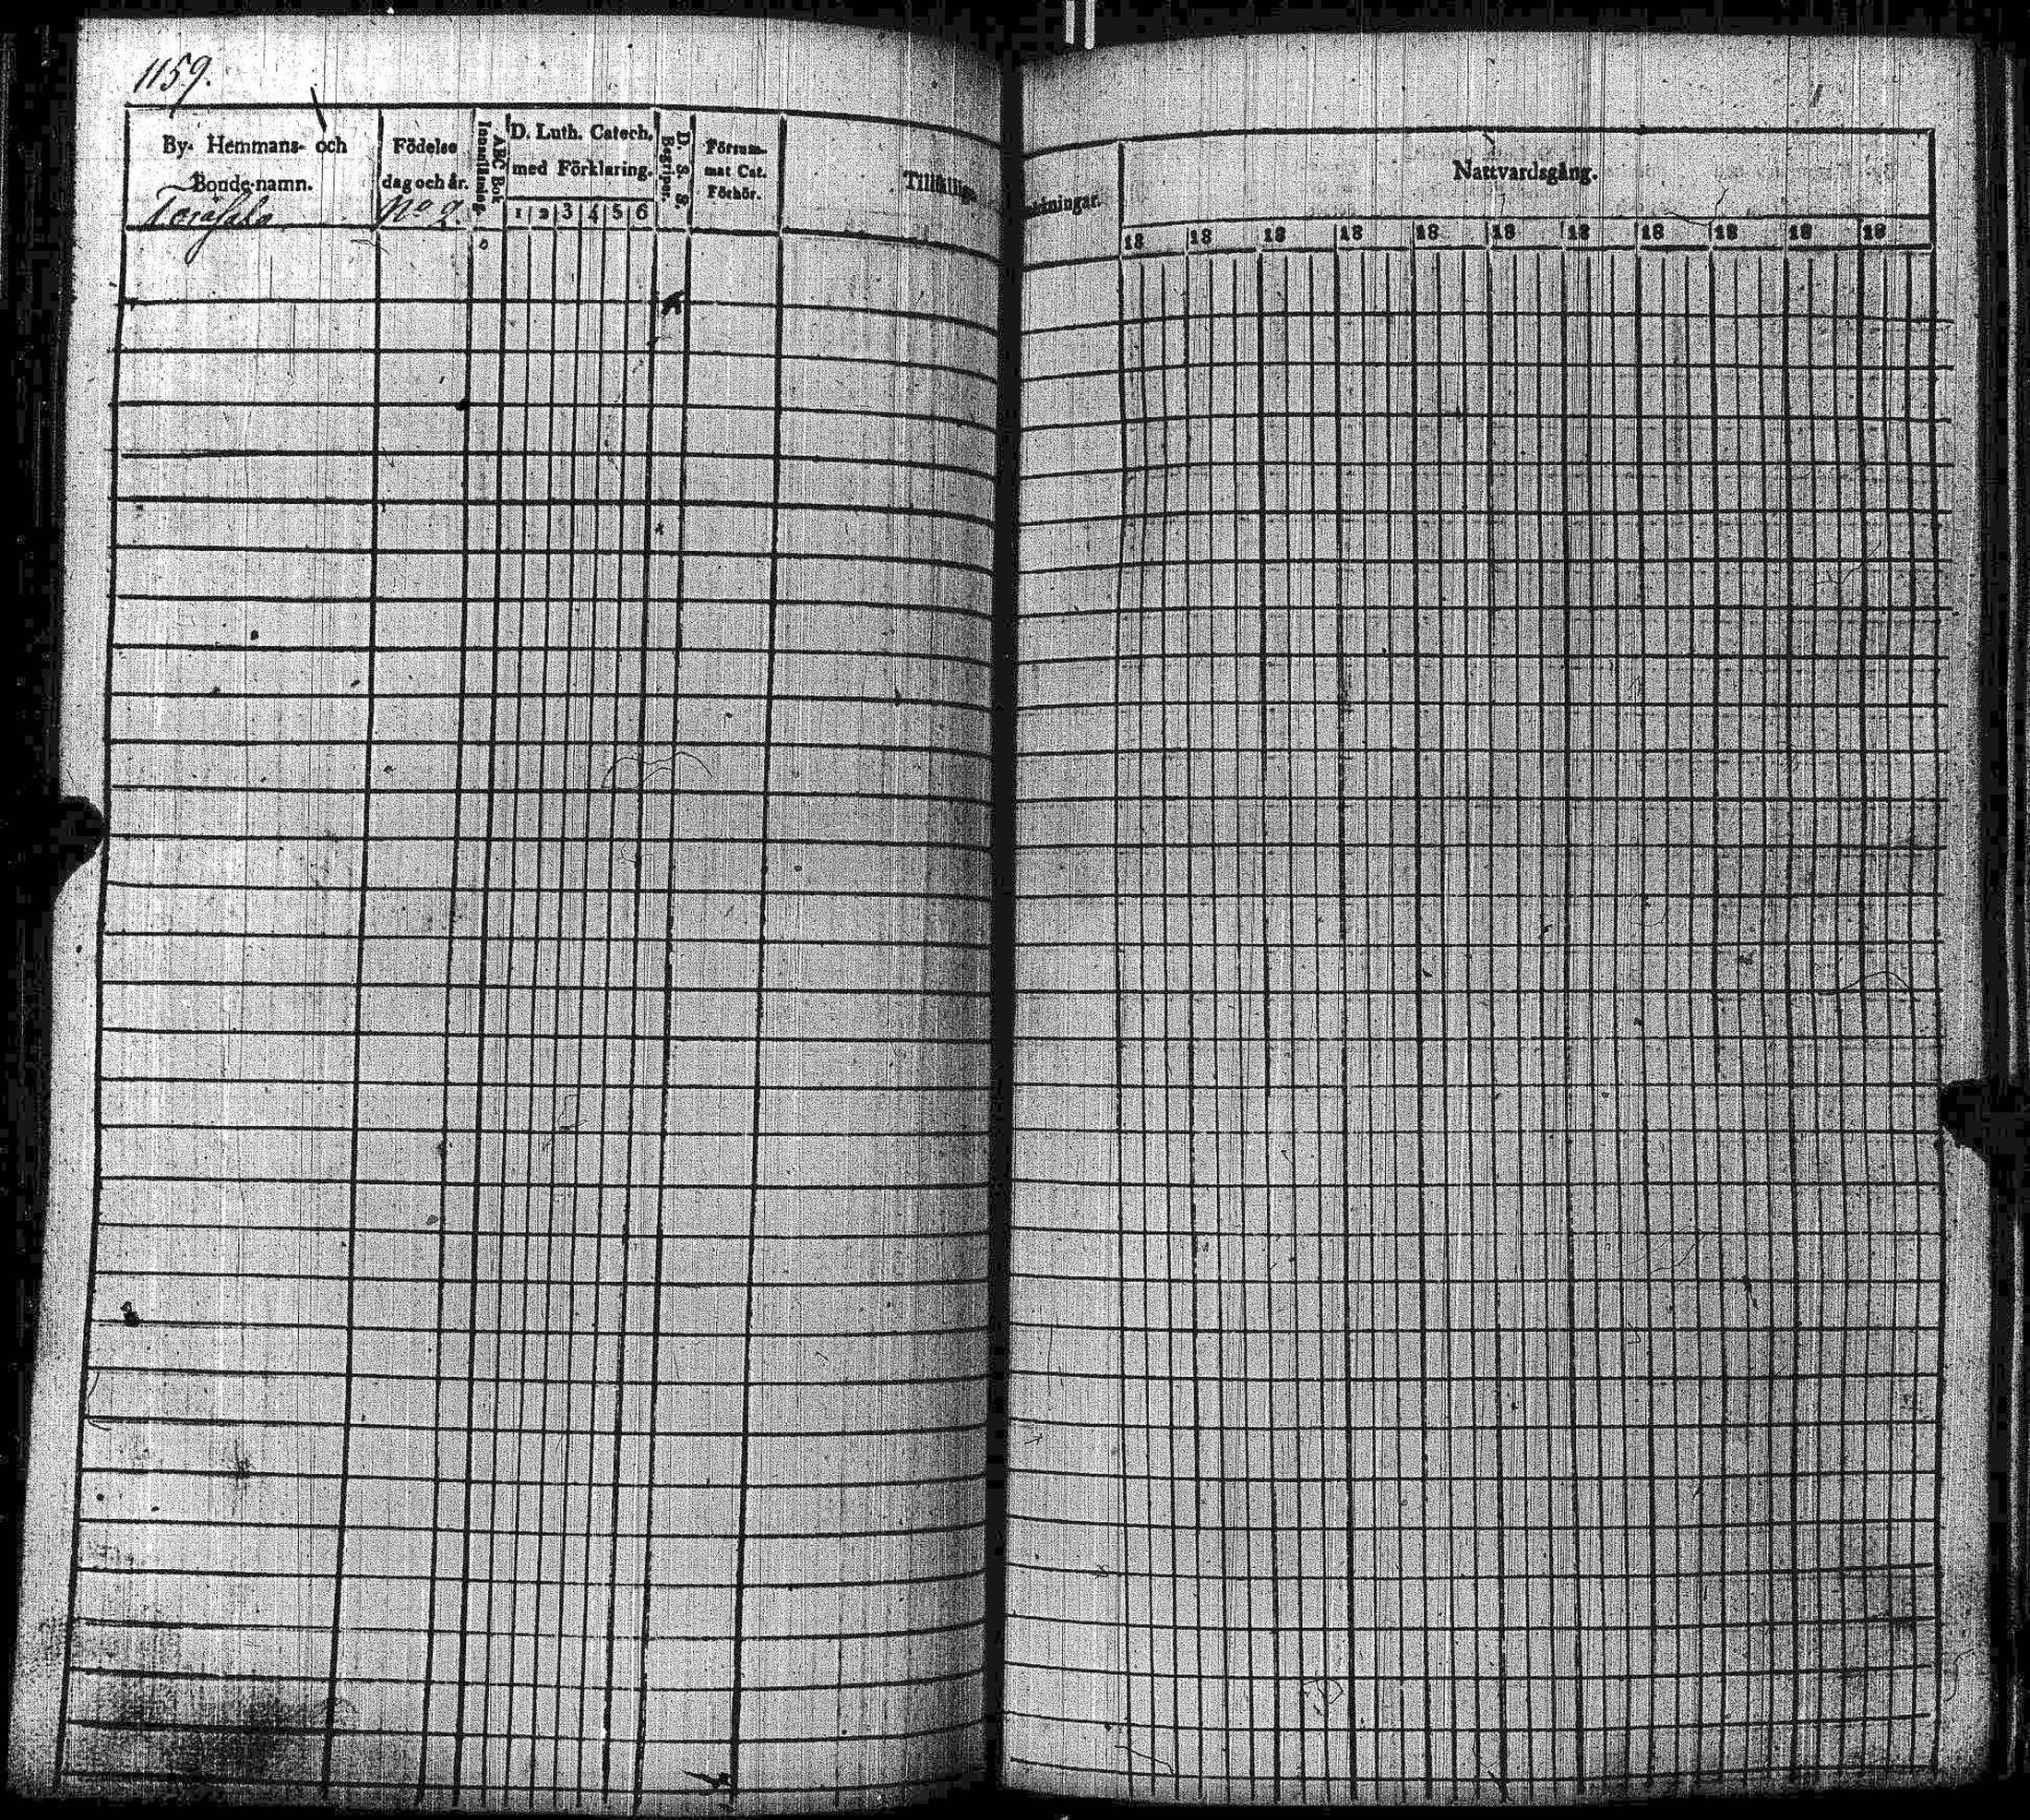 1159.
By- Hemmans- och
Bonde-namn.
Födelse
dag och år.
No 2.
Innanläsning.
ABC Bok
D. Luth. Catech.
med Förklaring.
1 2 3 4 5 6
Begriper.
D. S. S.
Försum-
mat Cat.
Förhör.
Tillfällige
Nattvardsgång.
18 18 18 18 18 18 18 18 18 18 18